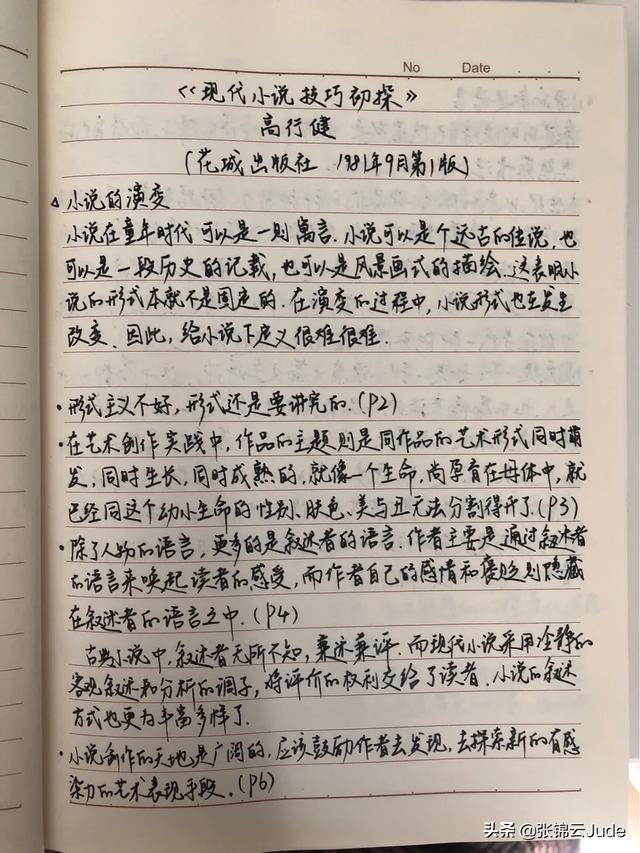 No Date
《现代小说技巧初探》
高行健
(花城出版社 1981年9月第1版)
△小说的演变
小说在童年时代可以是一则寓言.小说可以是个远古的传说,也
可以是一段历史的记载,也可以是风景画式的描绘.这表明小
说的形式本就不是固定的.在演变的过程中,小说形式也在发生
改变、因此,给小说下定义很难很难.
·形式主义不好,形式还是要讲究的.(P2)
·在艺术创作实践中,作品的主题则是同作品的艺术形式同时萌
发,同时生长,同时成熟的,就像一个生命,尚孕育在母体中,就
已经同这个幼小生命的性别、肤色、美与丑无法分割得开了.(P3)
·除了人物的语言,更多的是叙述者的语言.作者主要是通过叙述者
的语言来唤起读者的感受,而作者自己的感情和褒贬则隐藏
在叙述者的语言之中.(P4)
古典小说中,叙述者无所不知,兼述兼评.而现代小说采用冷静的
客观叙述和分析的调子,将评价的权利交给了读者.小说的叙述
方式也更为丰富多样了.
·小说创作的天地是广阔的,应该鼓励作者去发现,去探索新的有感
染力的艺术表现手段.(P6)
头条@张锦云Jude